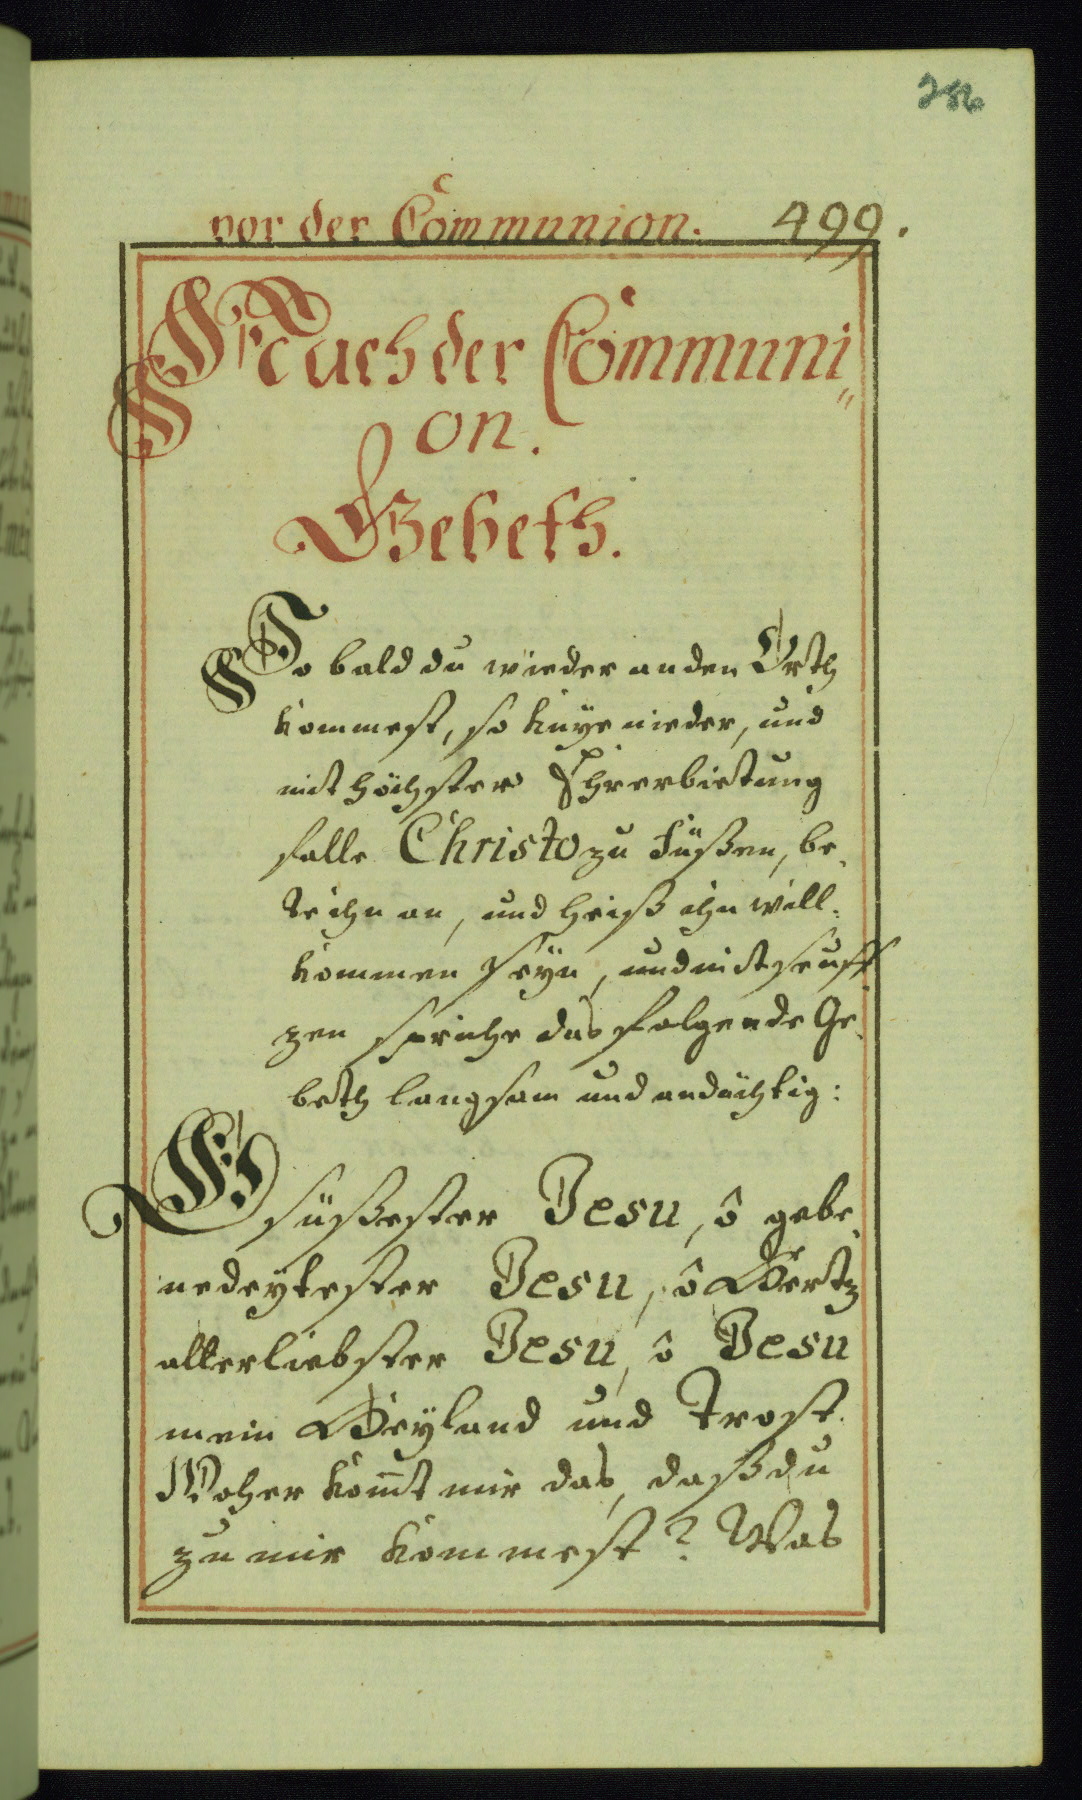 286
vor der Communion. 499.
Nach der Communi„
on.
Gebeth.
So bald du wieder an den Orth
kommest, so knÿe nieder, und
mit höchster Ehrerbietung
falle Christo zu Füßen, be„
te ihn an, und heiß ihn will„
kommen seÿn, und mit seuff„
zen spriche das folgende Ge„
beth langsam und andächtig:
O süßester Jesu, ô gebe„
nedeÿtester Jesu, ô Hertz
allerliebster Jesu, ô Jesu
mein Heÿland und Trost.
Woher kom̅t mir das, daß du
zu mir kommest? Was